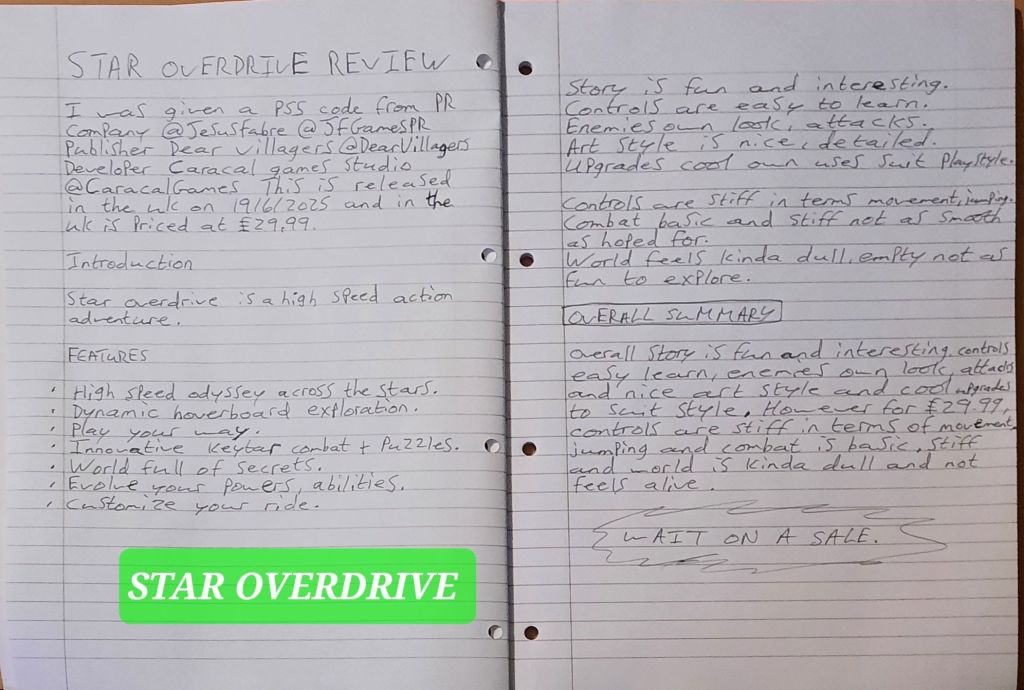 STAR OVERDRIVE REVIEW
I was given a PS5 code from PR
Company @Jesusfabre @JfGamesPR
Publisher Dear villagers @DearVillagers
Developer Caracal games studio
@CaracalGames This is released
in the uk on 19/6/2025 and in the
uk is Priced at £29,99.
Introduction
Star overdrive is a high speed action
adventure.
FEATURES
· High speed odyssey across the stars.
· Dynamic hoverboard exploration.
· Play your way.
· Innovative Keytar combat + Puzzles.
· World full of secrets.
· Evolve your powers, abilities.
· Customize your ride.
STAR OVERDRIVE
Story is fun and interesting.
Controls are easy to learn.
Enemies own look, attacks.
Art style is nice, detailed.
Upgrades cool own uses suit Playstyle.
Controls are stiff in terms movement, jumping.
Combat basic and stiff not as smooth
as hoped for.
World feels kinda dull, empty not as
fun to explore.
OVERALL SUMMARY
Overall Story is fun and interesting, controls
easy learn, enemies own look, attacks
and nice art style and cool upgrades
to suit style. However for £29.99,
controls are stiff in terms of movement,
jumping and combat is basic, stiff
and world is kinda dull and not
feels alive.
WAIT ON A SALE.